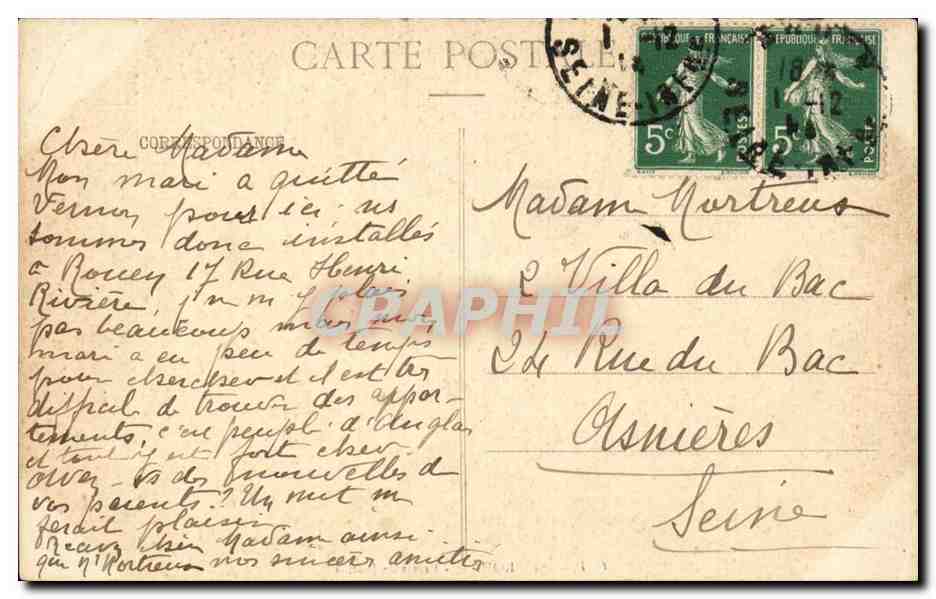 CARTE POSTALE
CORRESPONDANCE
Chère Madame
Mon mari a quitté
Vernon pour ici. ns
sommes donc installés
à Rouen 17 Rue Henri
Rivière, j'n m'y plais
pas beaucoup mais mon
mari a eu peu de temps
pour chercher et il est très
difficile de trouver des appar-
tements, c'en peuplé d'Anglais
et tout y est fort cher.
Avez-vs des nouvelles de
vos parents? Un mot me
ferait plaisir
Recevez chère Madame ainsi
que Mr Mortreux nos sincères amitiés
Madame Mortreux
2 Villa du Bac
24 Rue du Bac
Asnières
Seine
REPUBLIQUE FRANÇAISE
5c
POSTES
REPUBLIQUE FRANÇAISE
5c
POSTES
SEINE-INFRE
1-12
18
1-12
CPAPHIL